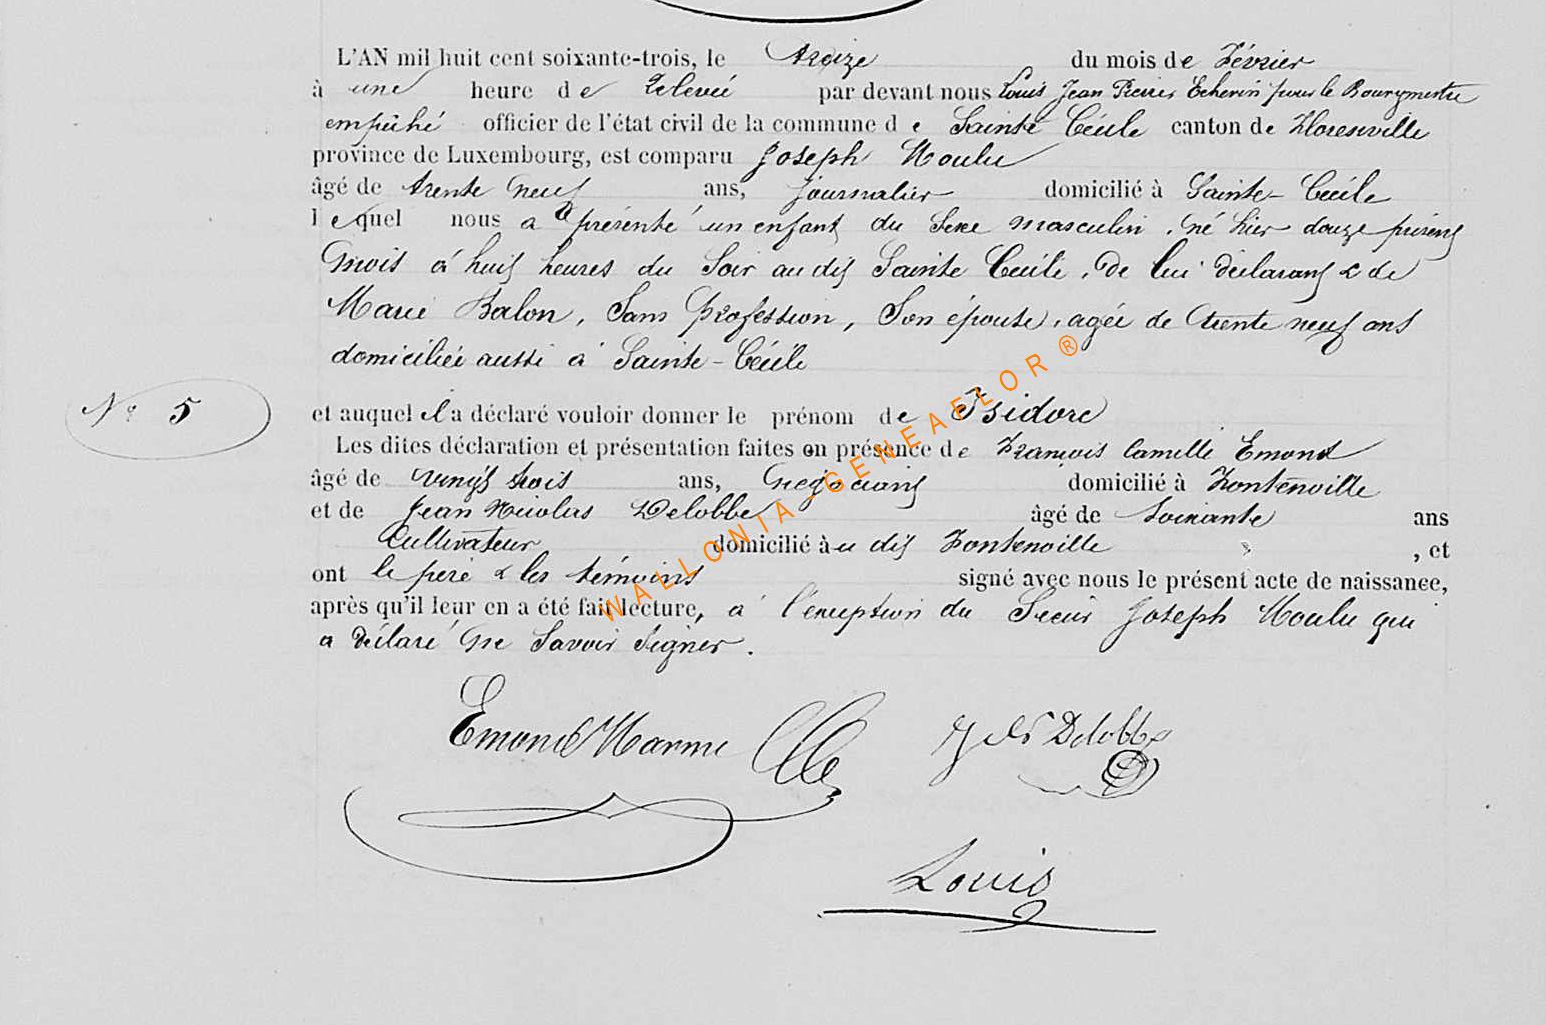 L'AN mil huit cent soixante-trois, le treize du mois de Février
à une heure de relevée par devant nous Louis Jean Pierre Echevin pour le Bourgmestre
empêché officier de l'état civil de la commune de Sainte Cécile canton de Florenville
province de Luxembourg, est comparu Joseph Moulu
âgé de trente neuf ans, journalier domicilié à Sainte-Cécile
lequel nous a présenté un enfant du Sexe masculin, né hier douze présent
mois à huit heures du Soir au dit Sainte Cécile, de lui déclarant & de
Marie Balon, Sans Profession, Son épouse, agée de trente neuf ans
domiciliée aussi à Sainte-Cécile
N° 5
et auquel il a déclaré vouloir donner le prénom de Isidore
Les dites déclaration et présentation faites en présence de François Camille Emond
âgé de vingt trois ans, Négociant domicilié à Fontenoille
et de Jean Nicolas Delobbe âgé de Soixante ans
Cultivateur domicilié àu dit Fontenoille , et
ont le père & les témoins signé avec nous le présent acte de naissance,
après qu'il leur en a été fait lecture, à l'éxception du Sieur Joseph Moulu qui
a déclaré ne Savoir Signer.
Emond Marme Delobbe
Louis
WALLONIA-GENEAFLOR®